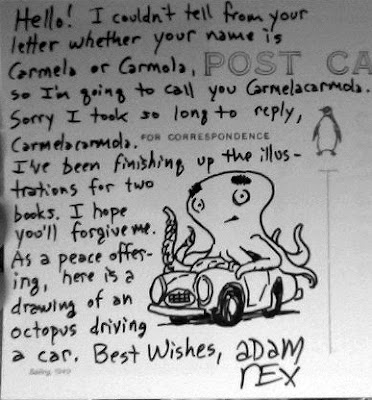 Hello! I couldn't tell from your
letter whether your name is
Carmela or Carmola,
POST CA
so I'm going to call you Carmelacarmola.
Sorry I took so long to reply,
Carmelacarmola.
FOR CORRESPONDENCE
I've been finishing up the illus-
trations for two
books. I hope
you'll forgive me.
As a peace offer-
ing, here is a
drawing of an
octopus driving
a car. Best Wishes, adam
rex